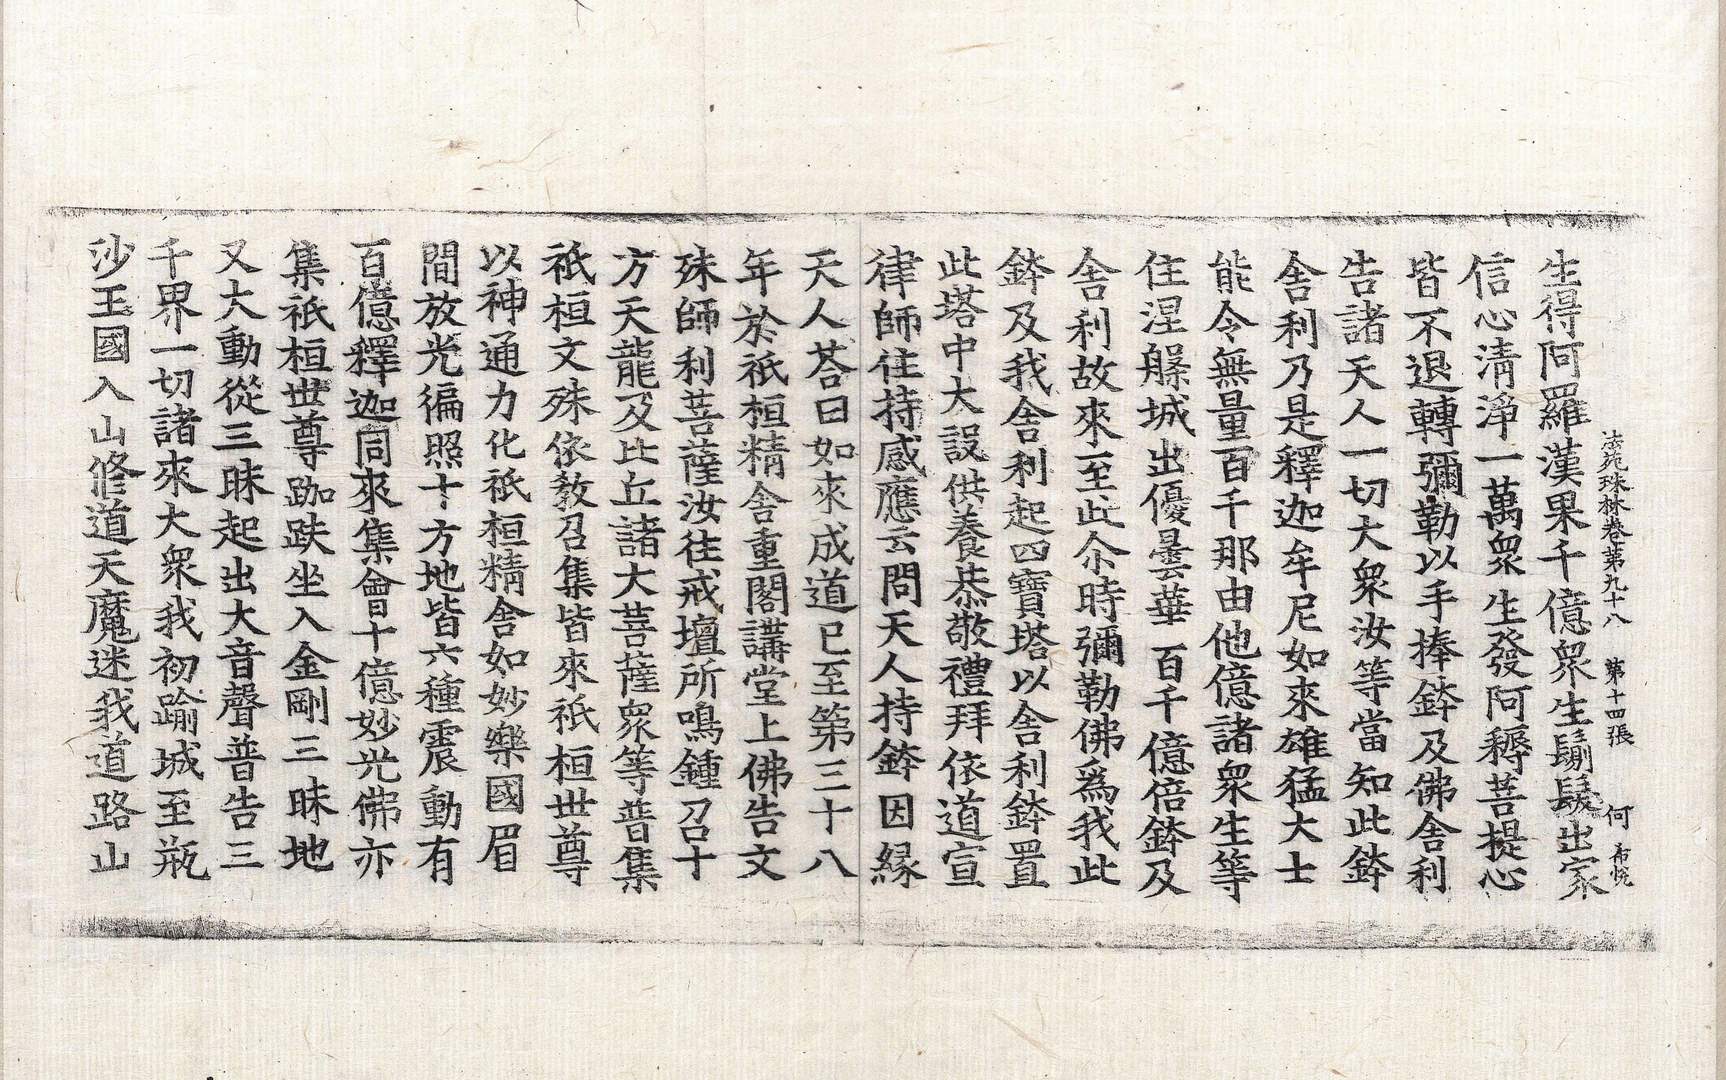 法苑珠林卷第九十八 第十四張 何 希悅
生得阿羅漢果千億衆生鬀髮出家
信心清淨一萬衆生發阿耨菩提心
皆不退轉彌勒以手捧鉢及佛舍利
告諸天人一切大衆汝等當知此鉢
舍利乃是釋迦牟尼如來雄猛大士
能令無量百千那由他億諸衆生等
住涅槃城出優曇華百千億倍鉢及
舍利故來至此尒時彌勒佛爲我此
鉢及我舍利起四寶塔以舍利鉢置
此塔中大設供養恭敬禮拜依道宣
律師住持感應云問天人持鉢因緣
天人荅曰如來成道已至第三十八
年於祇桓精舍重閣講堂上佛告文
殊師利菩薩汝往戒壇所鳴鍾召十
方天龍及比丘諸大菩薩衆等普集
祇桓文殊依教召集皆來祇桓世尊
以神通力化祇桓精舍如妙樂國眉
間放光徧照十方地皆六種震動有
百億釋迦同來集會十億妙光佛亦
集祇桓世尊跏趺坐入金剛三昧地
又大動從三昧起出大音聲普告三
千界一切諸來大衆我初踰城至瓶
沙王國入山修道天魔迷我道路山